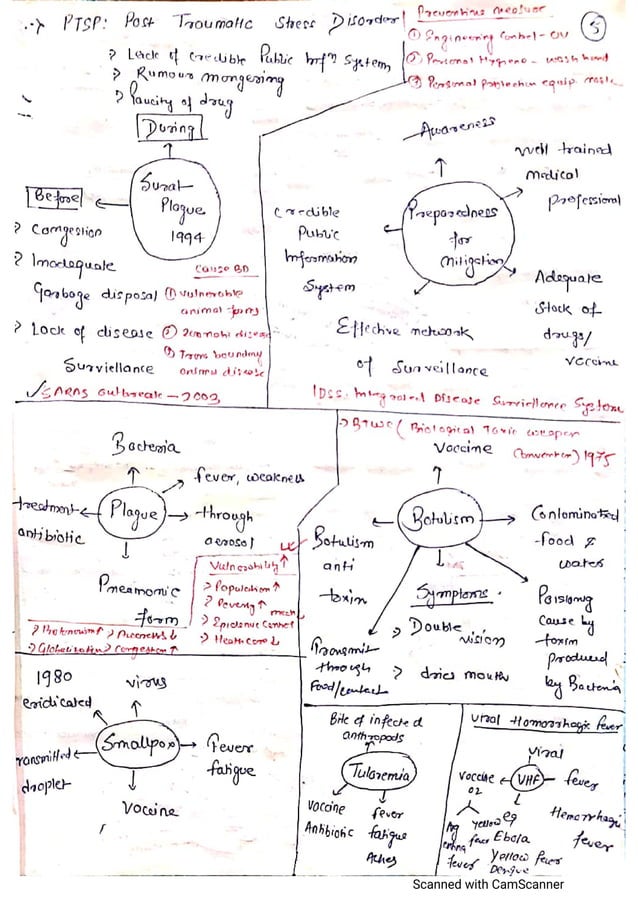 PTSP: Post Troumatic Stress Disorder
> Lack of credible Public Infn System
> Rumour mongering
> Paucity of drug
During
Surat
Plague
1994
Before
> Congestion
> Inadequate
Garbage disposal
> Lock of disease
Surviellance
Cause BD
① vulnerable
animal farms
② Zoonotic disease
③ Trans boundry
animal disease
✓ SARAS outbreak - 2003
Preventive measure
① Engineering Control - UV
② Personal Hygene - wash hand
③ Personal protection equip. mask
5
Awareness
Well trained
medical
professional
Preparedness
for
mitigation
Credible
Public
Information
System
Adequate
Stock of
drugs/
vaccine
Effective network
of Surveillance
IDSS: Integrated Disease Surviellance System
→ BTWC (Biological Toxic weapon
Convention) 1975
Bacteria
fever, weakness
Plague
through
aerosol
treatment
antibiotic
Pneamonic
form
Vulnerability ↑
> Population ↑
> Poverty ↑
> Epidemic Control
> Heath care ↓
> Awareness ↓
> Globalization > Congestion ↑
Vaccine
Botulism
Contaminated
food &
water
Botulism
anti
toxin
Symptoms.
> Double
vision
> dries mouth
Poisiong
cause by
toxin
produced
by Bacteria
Transmit
through
Food/contact
1980
eridicated
virus
Smallpox
Fever
fatigue
transmitted
droplet
Vaccine
Bite of infected
anthropods
Tularemia
vaccine
Antibiotic
fever
fatigue
Aches
Viral Homorrhagic fever
Viral
VHF
fever
vaccine
02
yellow
fever
Arg
entina
fever
eg
Ebola
Yellow fever
Dengue
Hemorrhagi
fever
Scanned with CamScanner